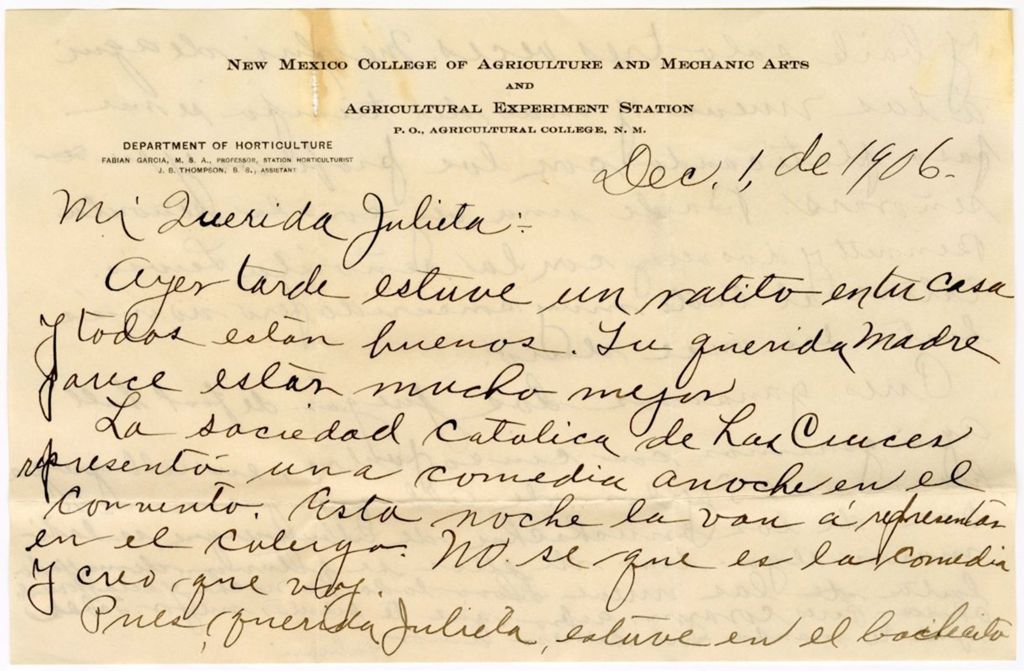 NEW MEXICO COLLEGE OF AGRICULTURE AND MECHANIC ARTS
AND
AGRICULTURAL EXPERIMENT STATION
P. O., AGRICULTURAL COLLEGE, N. M.
DEPARTMENT OF HORTICULTURE
FABIAN GARCIA, M. S. A., PROFESSOR, STATION HORTICULTURIST
J. B. THOMPSON, B. S., ASSISTANT
Dec. 1, de 1906.
Mi Querida Julieta:-
Ayer tarde estuve un ratito en tu casa
y todos estan buenos. Tu querida Madre
parece estar mucho mejor
La sociedad catolica de Las Cruces
representó una comedia anoche en el
convento. Esta noche la van á representar
en el colegio. No se que es la comedia
y creo que voy.
Pues, querida Julieta, estuve en el bailecito